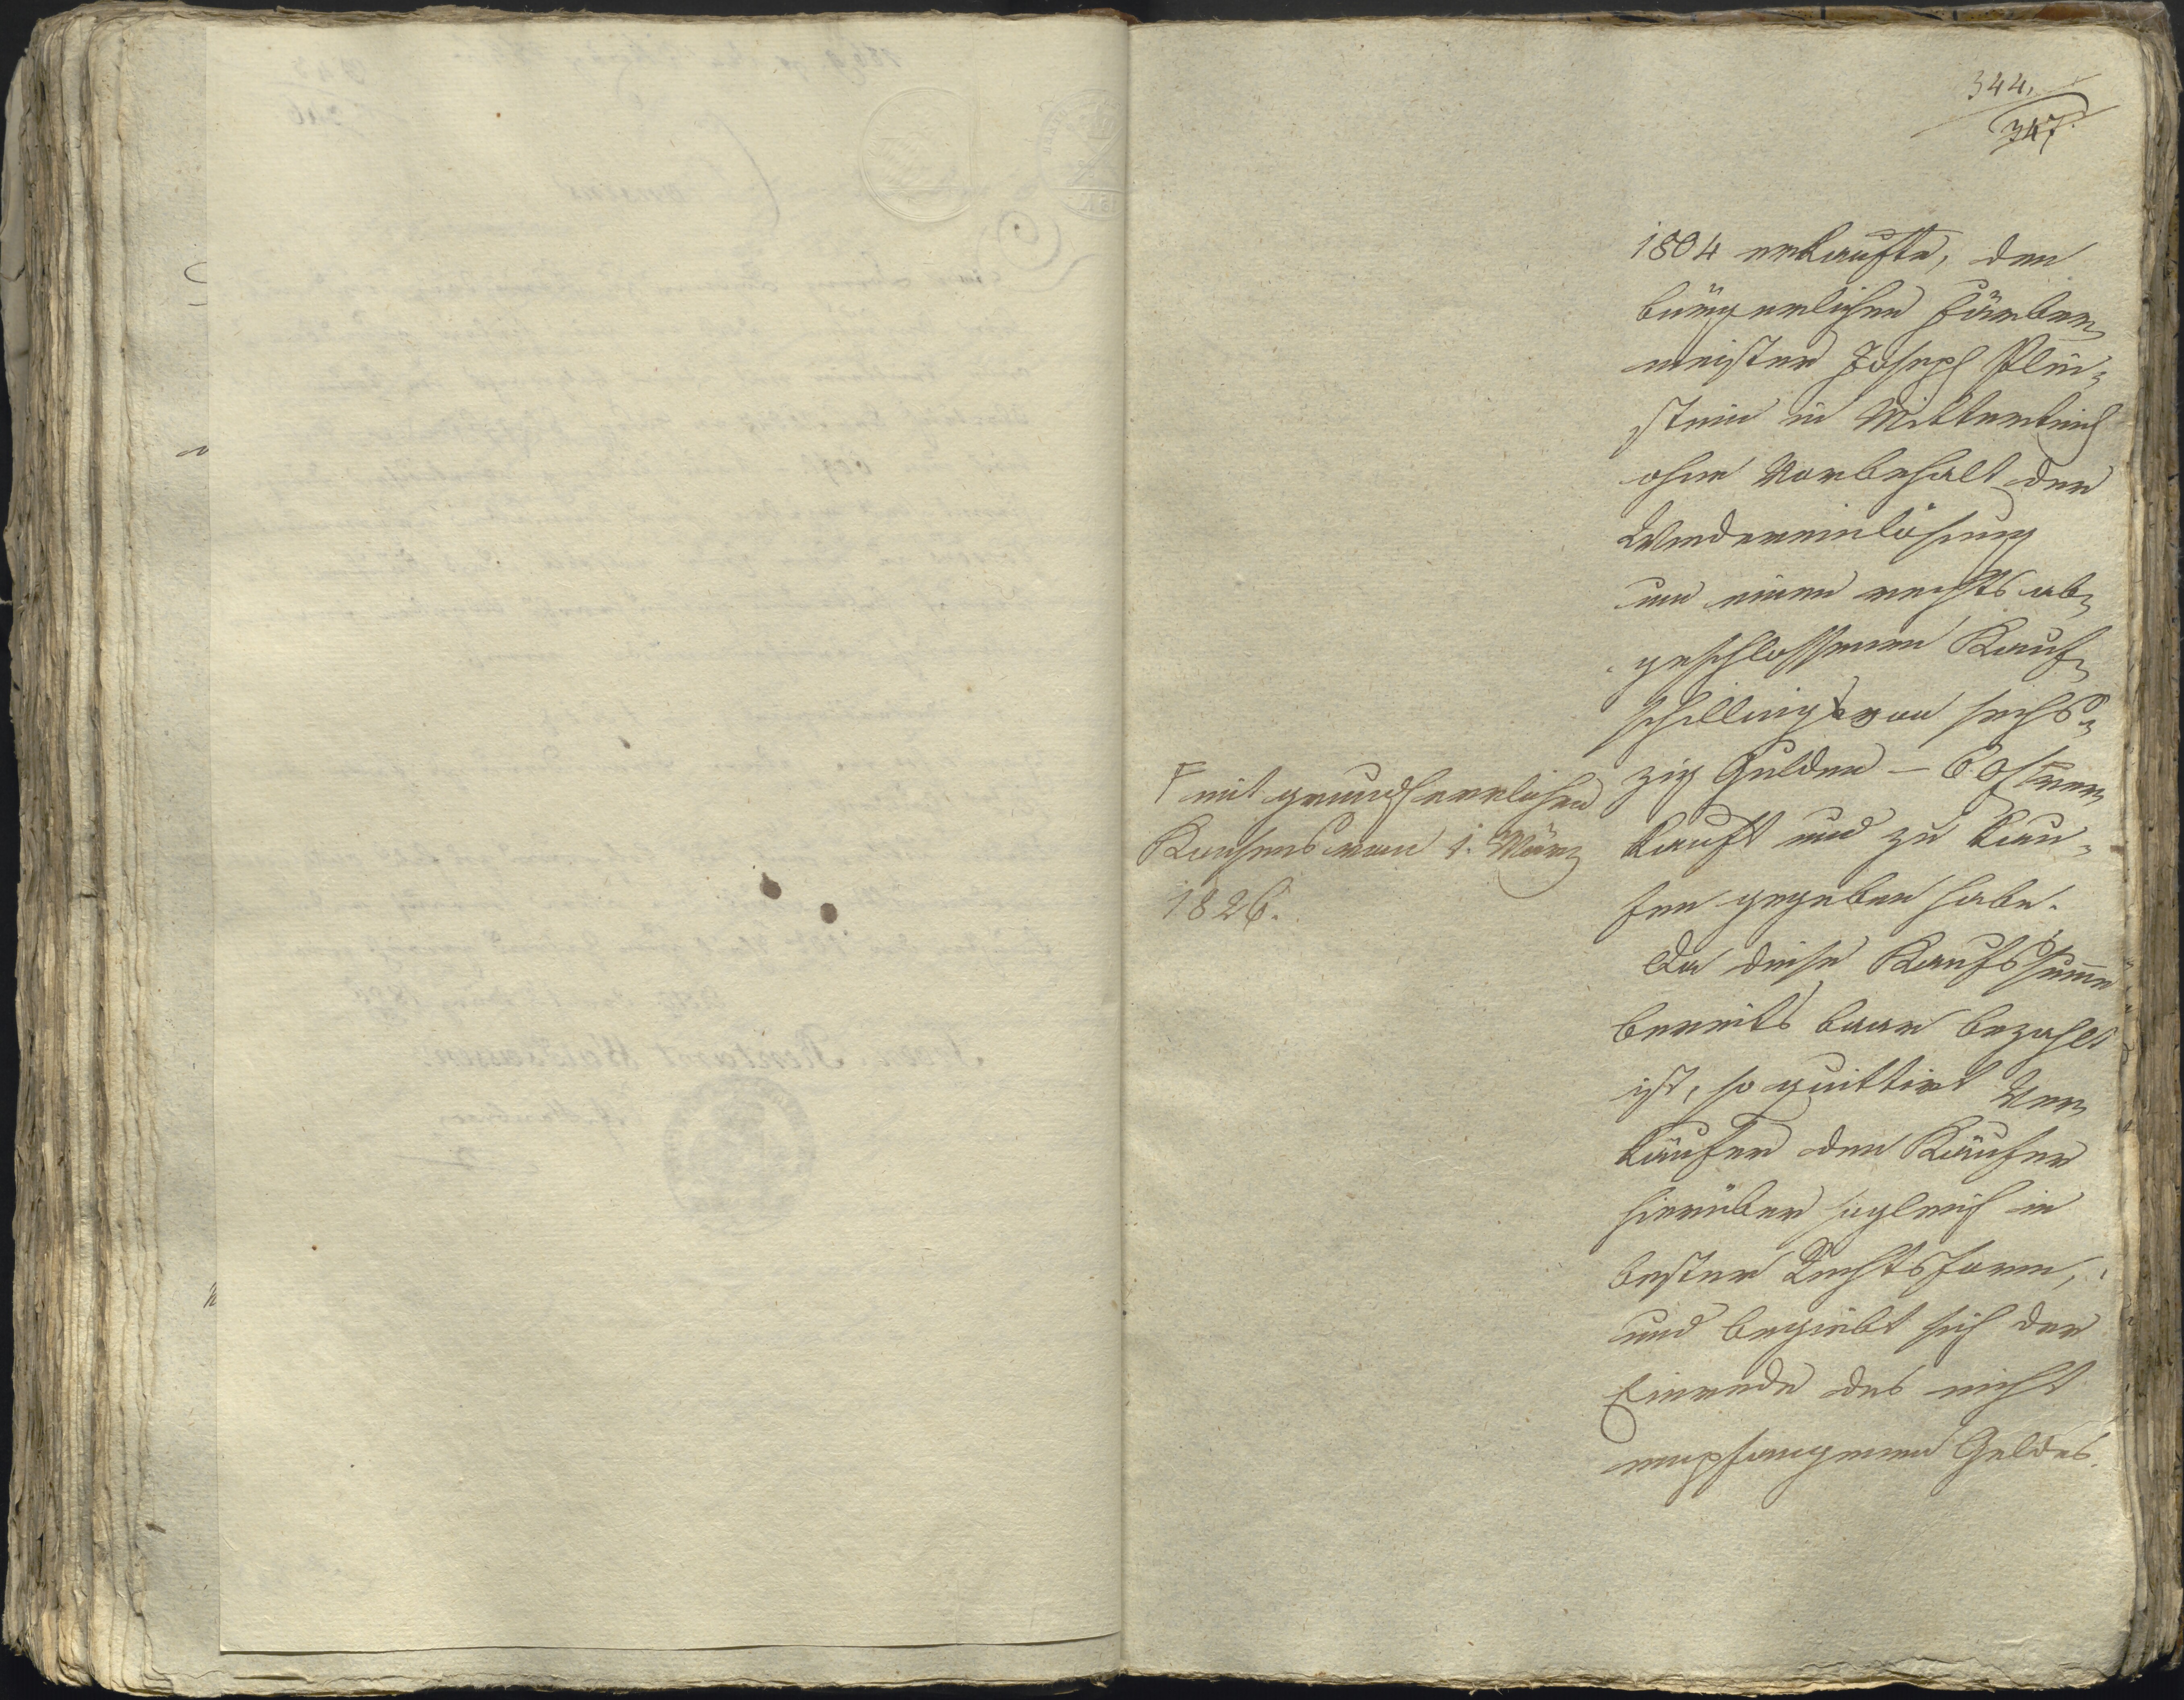 344.
347.
1804 erkaufte, dem
bürgerlichen Färber¬
meister Joseph
stein in Mitterteich
ohne Vorbehalt der
Wiedereinlösung
um einen rechts ab¬
geschlossenen Kauf¬
schilling von sechs¬
zig Gulden – 60 f ver¬
kauft und zu kau¬
fen gegeben habe.
Da diese Kaufssumme
bereits baar bezahlt
ist, so quittirt Ver¬
käufer den Käufer
hierüber sogleich in
bester Rechtsform,
und begiebt sich der
Einrede des nicht
empfangenen Geldes.
F mit grundherrlichen
Konsens vom 1. März
1826.